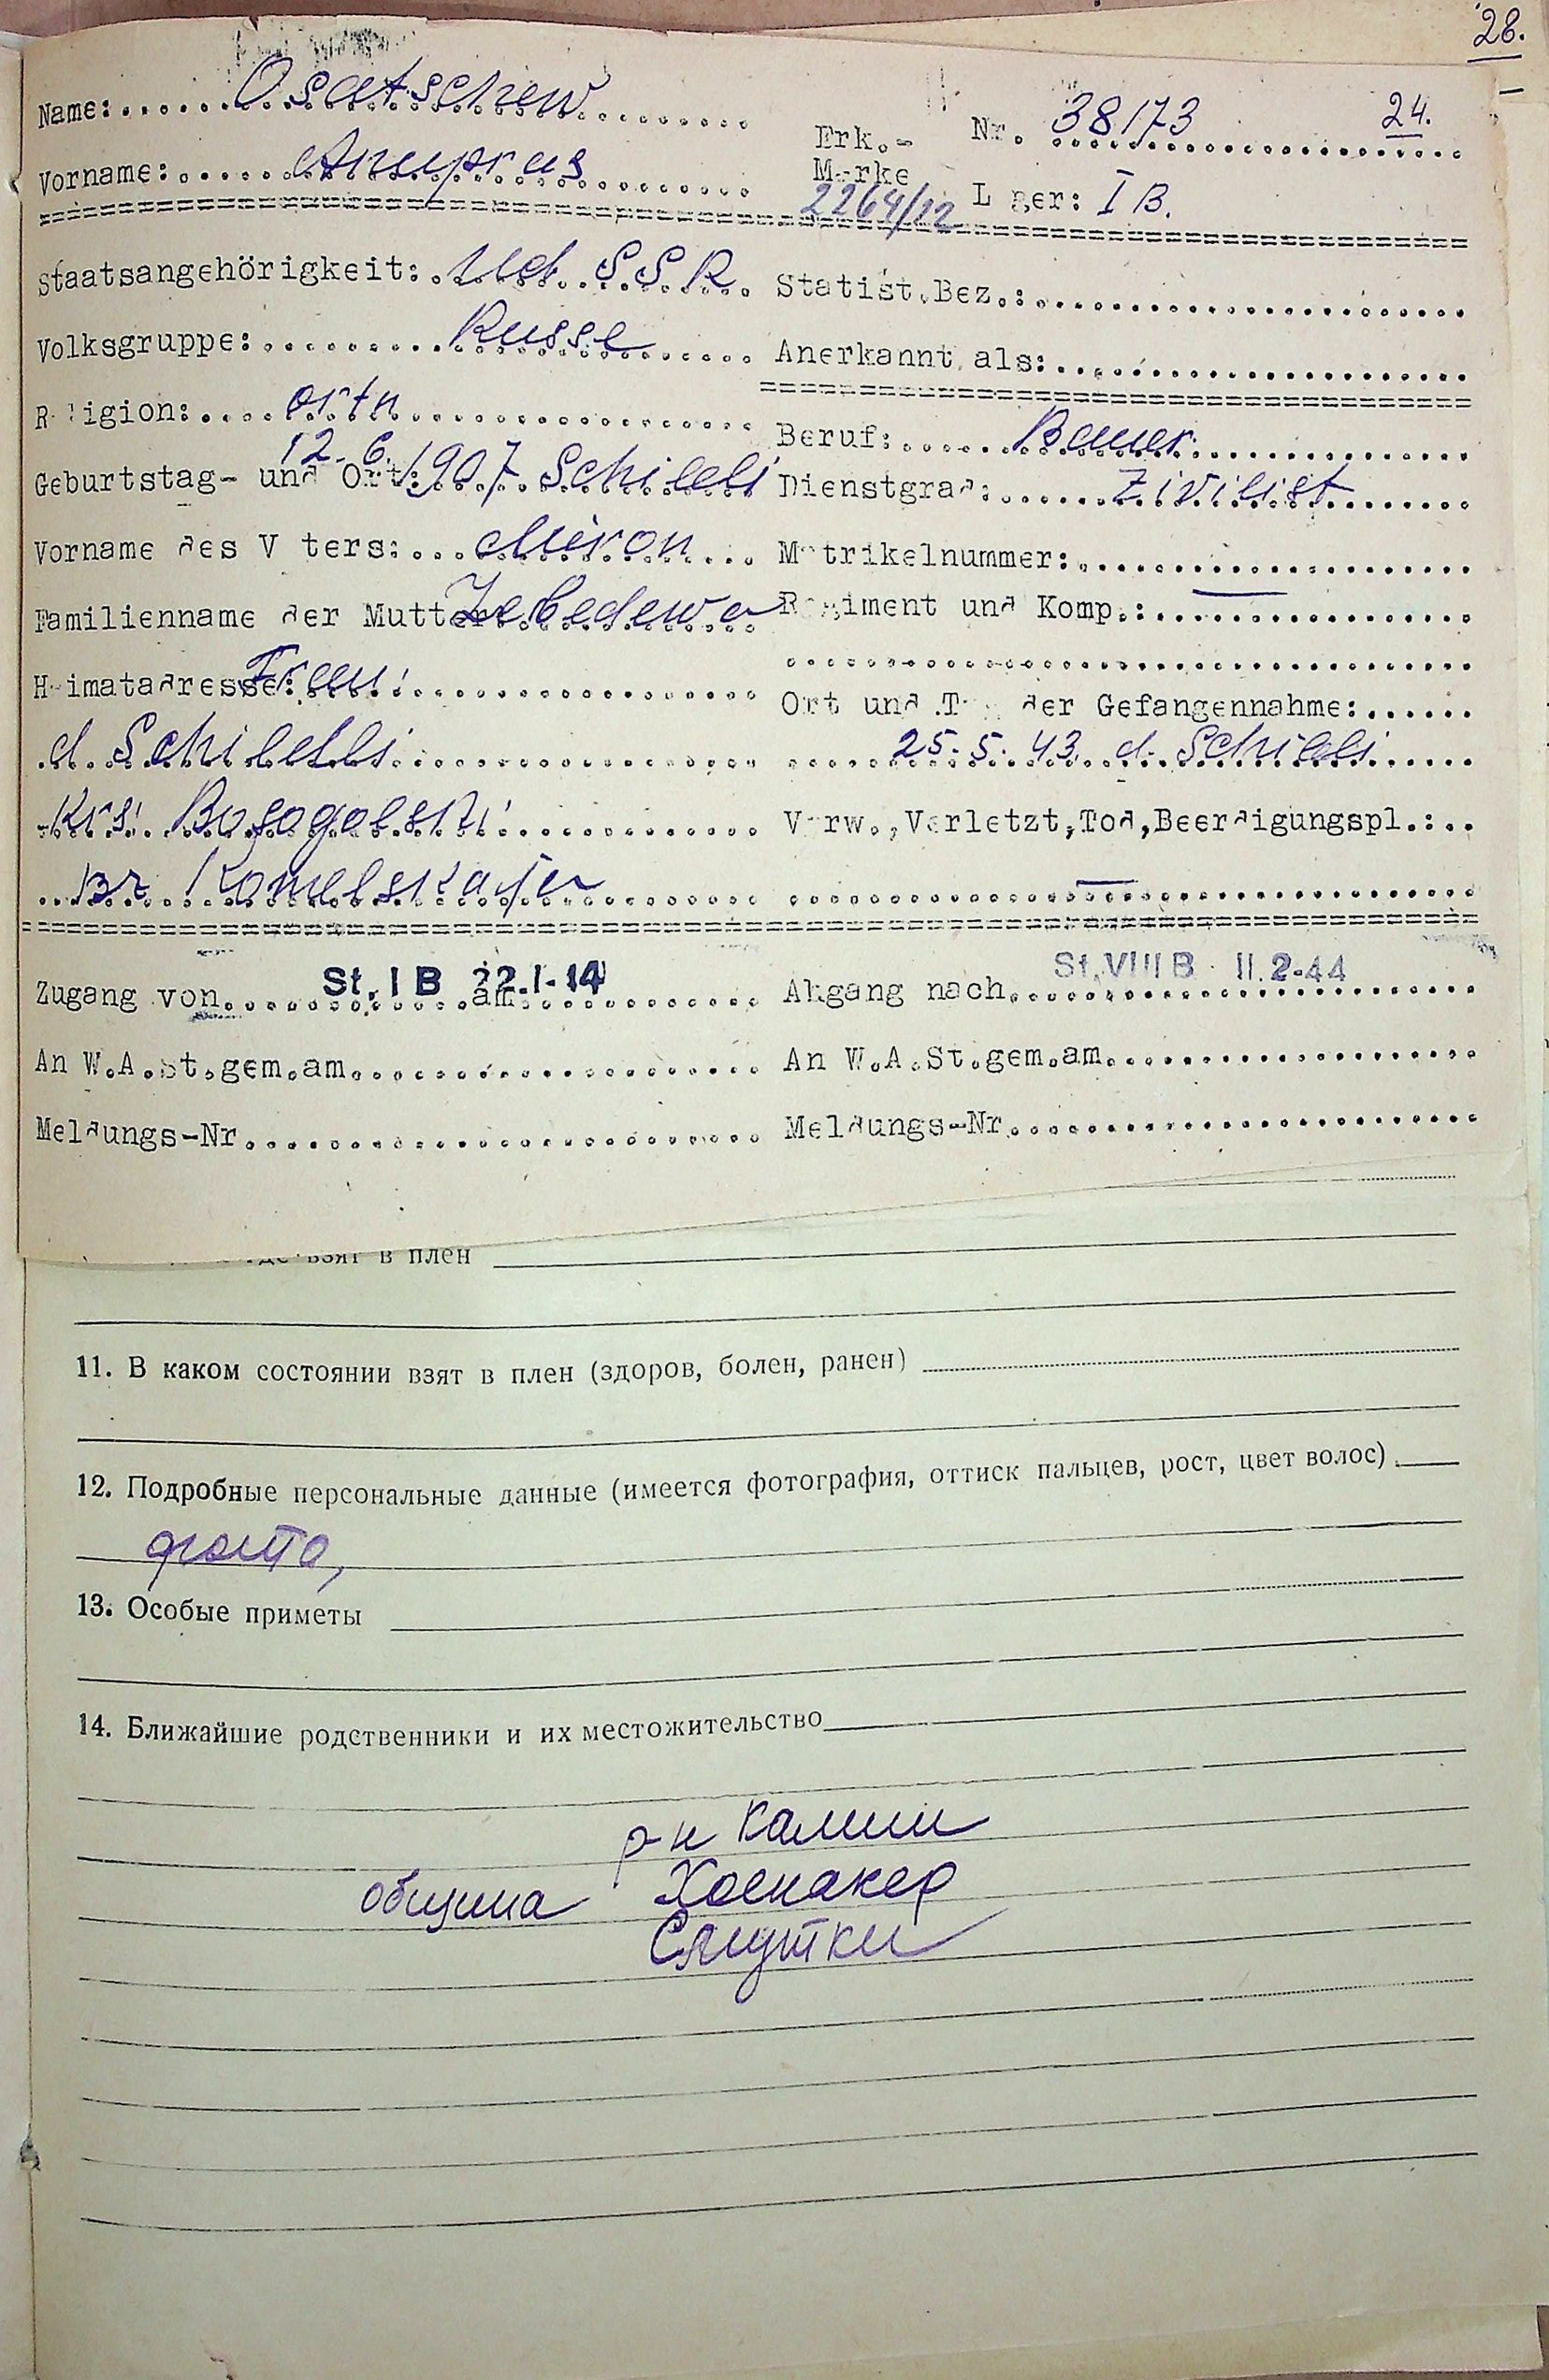 28.
Name: Osatschew
Erk.- Nr. 38173 24.
Vorname: Anupras
Marke
2264/12 Lager: I B.
Staatsangehörigkeit: Ud. S.S.R. Statist.Bez.:
Volksgruppe: Russe Anerkannt als:
Religion: ortn Beruf: Bauer
Geburtstag- und Ort: 12.6.1907 Schileli Dienstgrad: Zivilist
Vorname des Vaters: Miron Matrikelnummer: —
Familienname der Mutter: Lebedewa Regiment und Komp.:
Heimatadresse: Frau: Ort und Tag der Gefangennahme:
d. Schilelli 25.5.43 d. Schileli
Krs. Verw.,Verletzt,Tod,Beerdigungspl.:
—
Zugang von St. I B am 22.1-14 Abgang nach St. VIII B 11.2-44
An W.A.St.gem.am An W.A.St.gem.am
Meldungs-Nr Meldungs-Nr
взят в плен
11. В каком состоянии взят в плен (здоров, болен, ранен)
12. Подробные персональные данные (имеется фотография, оттиск пальцев, рост, цвет волос)
фото,
13. Особые приметы
14. Ближайшие родственники и их местожительство
р-н Калиш
община Хоенакер